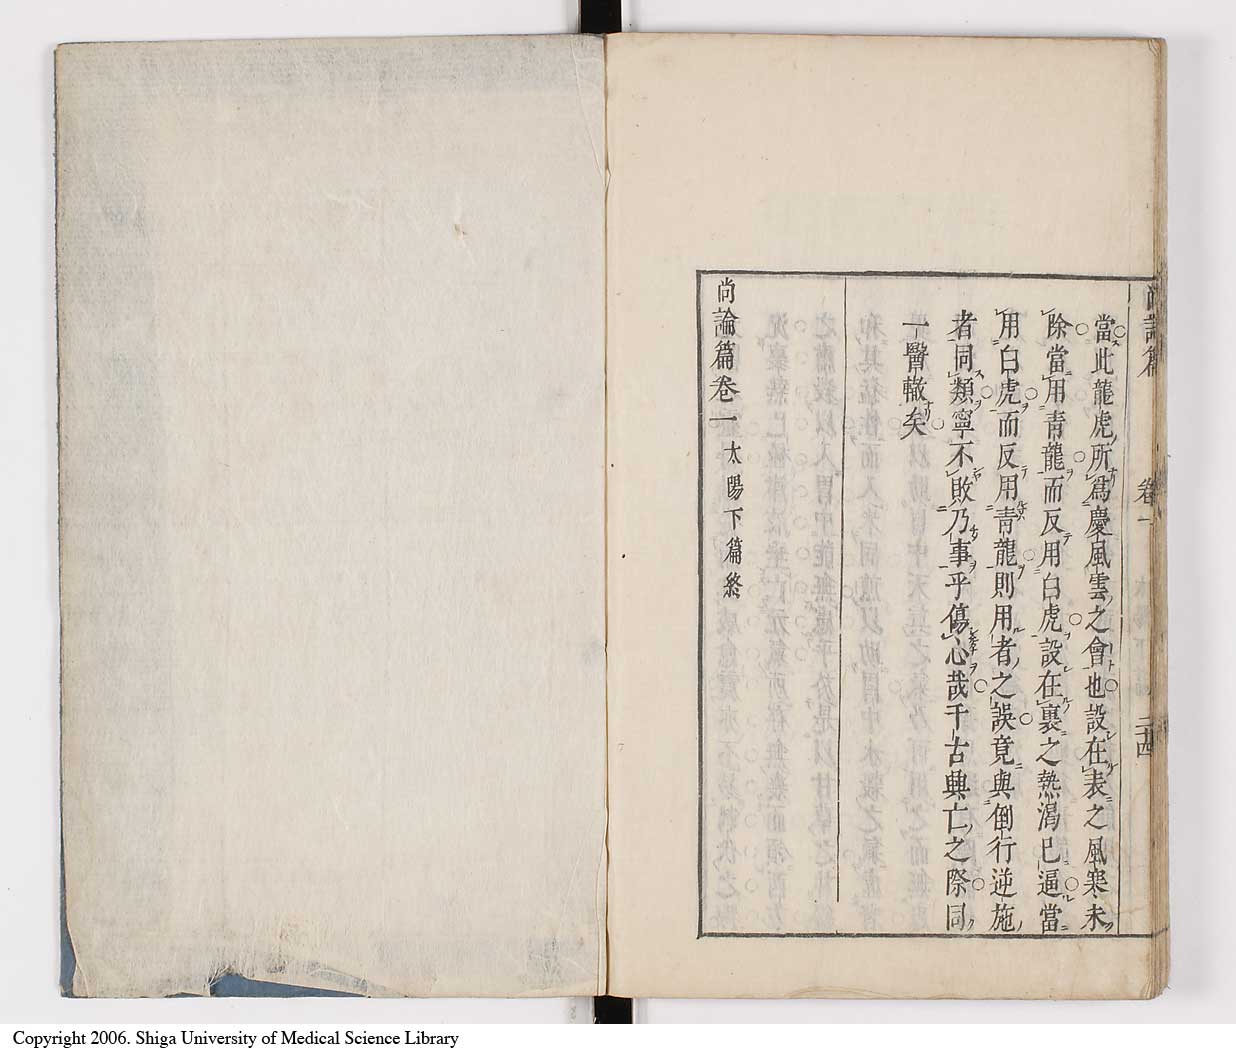 尚論篇 卷一 二十四
當此龍虎所爲慶風雲之會也設在表之風寒未
除當用青龍而反用白虎設在裏之熱渴已逼當
用白虎而反用青龍則用者之誤竟與倒行逆施
者同類寧不敗乃事乎傷心哉千古興亡之際同
一醫轍矣
尚論篇卷一 太陽下篇終
Copyright 2006. Shiga University of Medical Science Library